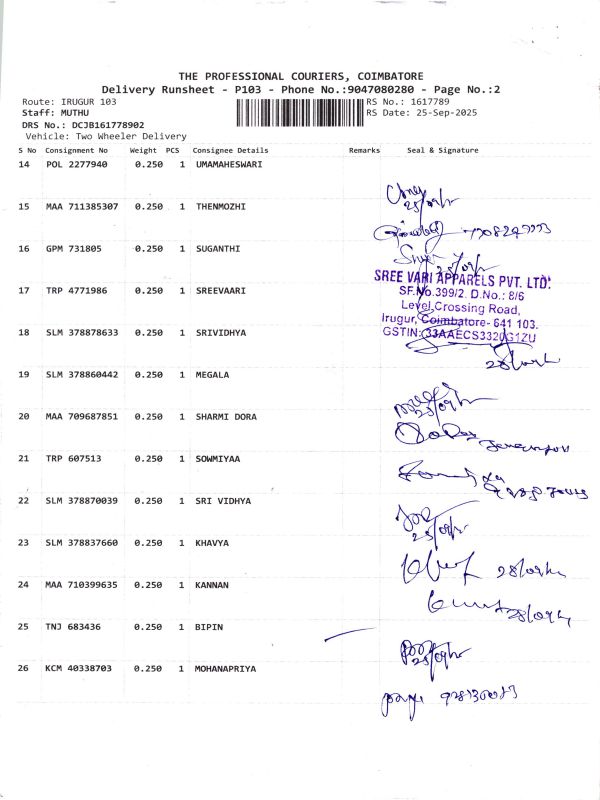 THE PROFESSIONAL COURIERS, COIMBATORE
Delivery Runsheet - P103 - Phone No.:9047080280 - Page No.:2
Route: IRUGUR 103 RS No.: 1617789
Staff: MUTHU RS Date: 25-Sep-2025
DRS No.: DCJB161778902
Vehicle: Two Wheeler Delivery
S No Consignment No Weight PCS Consignee Details Remarks Seal & Signature
14 POL 2277940 0.250 1 UMAMAHESWARI
15 MAA 711385307 0.250 1 THENMOZHI
16 GPM 731805 0.250 1 SUGANTHI
17 TRP 4771986 0.250 1 SREEVAARI
SREE VARI APPARELS PVT. LTD.
SF.No.399/2. D.No.: 8/6
Level Crossing Road,
Irugur, Coimbatore- 641 103.
GSTIN: 33AAECS3320G1ZU
18 SLM 378878633 0.250 1 SRIVIDHYA
19 SLM 378860442 0.250 1 MEGALA
20 MAA 709687851 0.250 1 SHARMI DORA
21 TRP 607513 0.250 1 SOWMIYAA
22 SLM 378870039 0.250 1 SRI VIDHYA
23 SLM 378837660 0.250 1 KHAVYA
24 MAA 710399635 0.250 1 KANNAN
25 TNJ 683436 0.250 1 BIPIN
26 KCM 40338703 0.250 1 MOHANAPRIYA